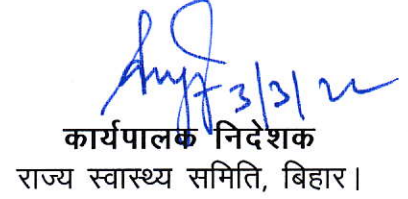 3/3/22
कार्यपालक निदेशक
राज्य स्वास्थ्य समिति, बिहार।